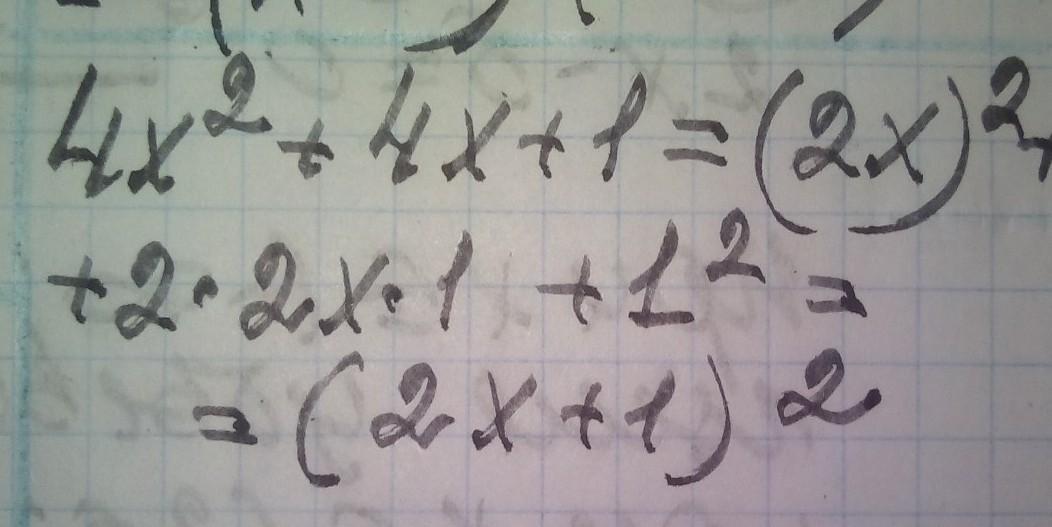 4x² + 4x + 1 = (2x)² +
+ 2 · 2x · 1 + 1² =
= (2x + 1)².